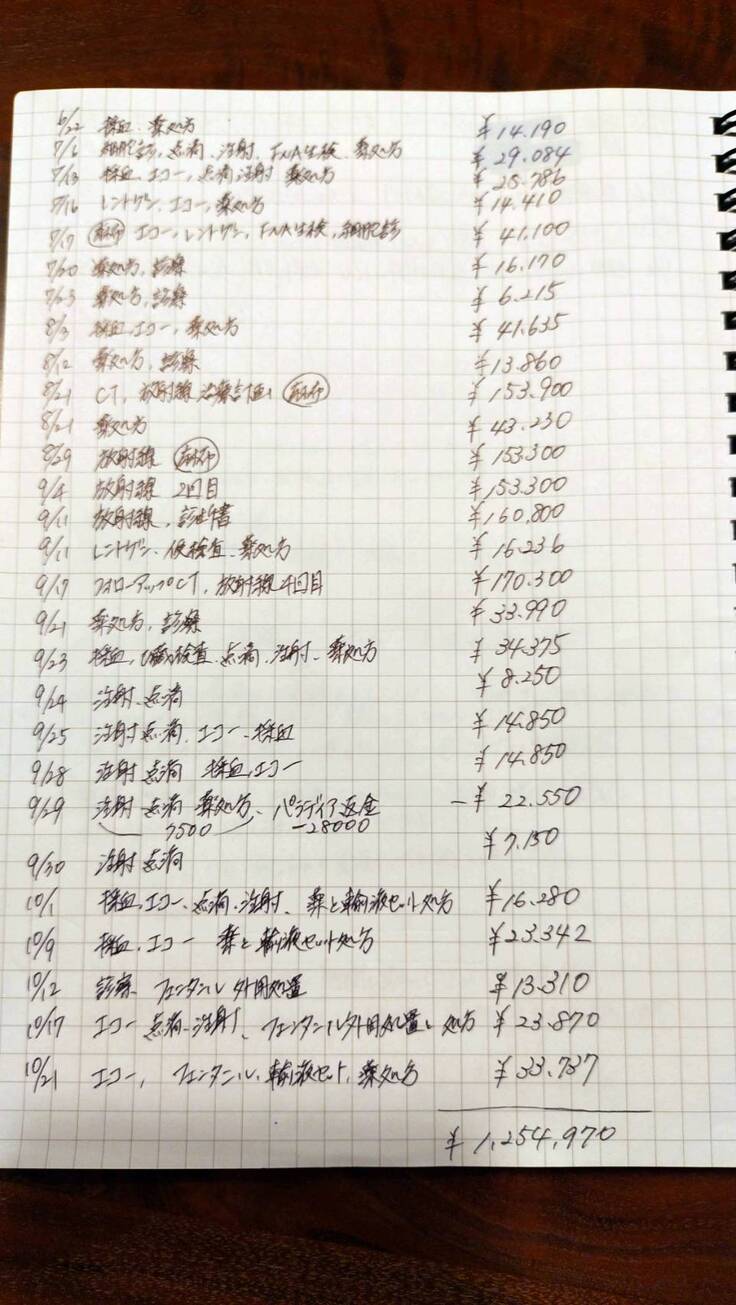 6/22 採血、薬処方 ¥14.190
7/6 細胞診、点滴、注射、FNA生検、薬処方 ¥29.084
7/13 採血、エコー、点滴注射 薬処方 ¥25.786
7/16 レントゲン、エコー、薬処方 ¥14.410
7/17 エコー、レントゲン、FNA生検、細胞診 ¥41.100
7/20 薬処方、診察 ¥16.170
7/23 薬処方、診察 ¥6.215
8/3 採血、エコー、薬処方 ¥41.635
8/12 薬処方、診察 ¥13.860
8/21 CT、放射線治療計画 ¥153.900
8/21 薬処方 ¥43.230
8/29 放射線 ¥153.300
9/4 放射線 2回目 ¥153.300
9/11 放射線、診断書 ¥160.800
9/11 レントゲン、便検査、薬処方 ¥16.236
9/17 フォローアップCT、放射線4回目 ¥170.300
9/21 薬処方、診察 ¥33.990
9/23 採血、検査、点滴、注射、薬処方 ¥34.375
9/24 注射、点滴 ¥8.250
9/25 注射点滴、エコー、採血 ¥14.850
9/28 注射 点滴 採血、エコー ¥14.850
9/29 注射 点滴 薬処方、パラディア返金 -¥22.550
7500 -28000
9/30 注射 点滴 ¥7.150
10/1 採血、エコー、点滴、注射、薬と輸液セット処方 ¥16.280
10/9 採血、エコー 薬と輸液セット処方 ¥23.342
10/12 診察、フェンタニル外用処置 ¥13.310
10/17 エコー 点滴、注射、フェンタニル外用処置、処方 ¥23.870
10/21 エコー、フェンタニル、輸液セット、薬処方 ¥33.737
¥1,254,970